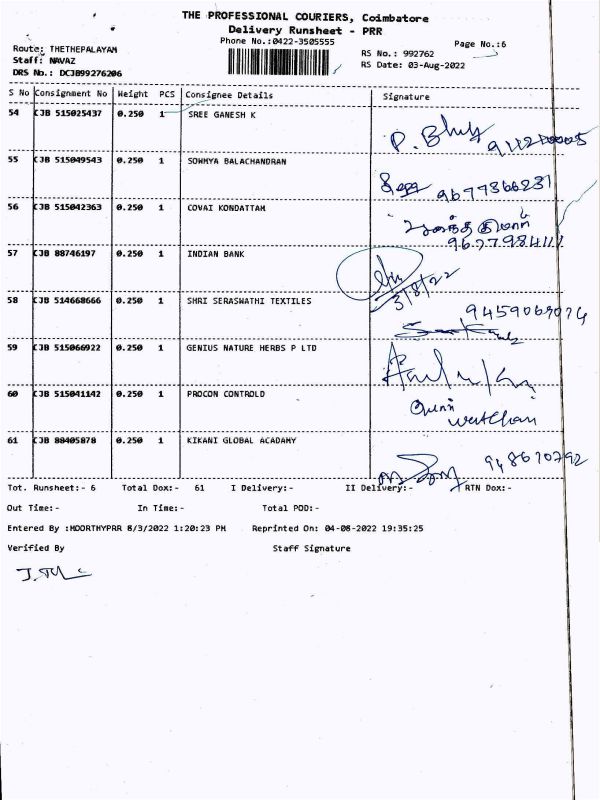 THE PROFESSIONAL COURIERS, Coimbatore
Delivery Runsheet - PRR
Phone No.:0422-3505555
Page No.:6
Route: THETHEPALAYAM
RS No.: 992762
Staff: NAVAZ
RS Date: 03-Aug-2022
DRS No.: DCJB99276206
S No Consignment No Weight PCS Consignee Details Signature
54 CJB 515025437 0.250 1 SREE GANESH K
55 CJB 515049543 0.250 1 SOWMYA BALACHANDRAN 9677366231
56 CJB 515042363 0.250 1 COVAI KONDATTAM
57 CJB 88746197 0.250 1 INDIAN BANK 3/8/22
58 CJB 514668666 0.250 1 SHRI SERASWATHI TEXTILES
59 CJB 515066922 0.250 1 GENIUS NATURE HERBS P LTD
60 CJB 515041142 0.250 1 PROCON CONTROLD
61 CJB 88405878 0.250 1 KIKANI GLOBAL ACADAMY
Tot. Runsheet:- 6 Total Dox:- 61 I Delivery:- II Delivery:- RTN Dox:-
Out Time:- In Time:- Total POD:-
Entered By :MOORTHYPRR 8/3/2022 1:20:23 PM Reprinted On: 04-08-2022 19:35:25
Verified By Staff Signature